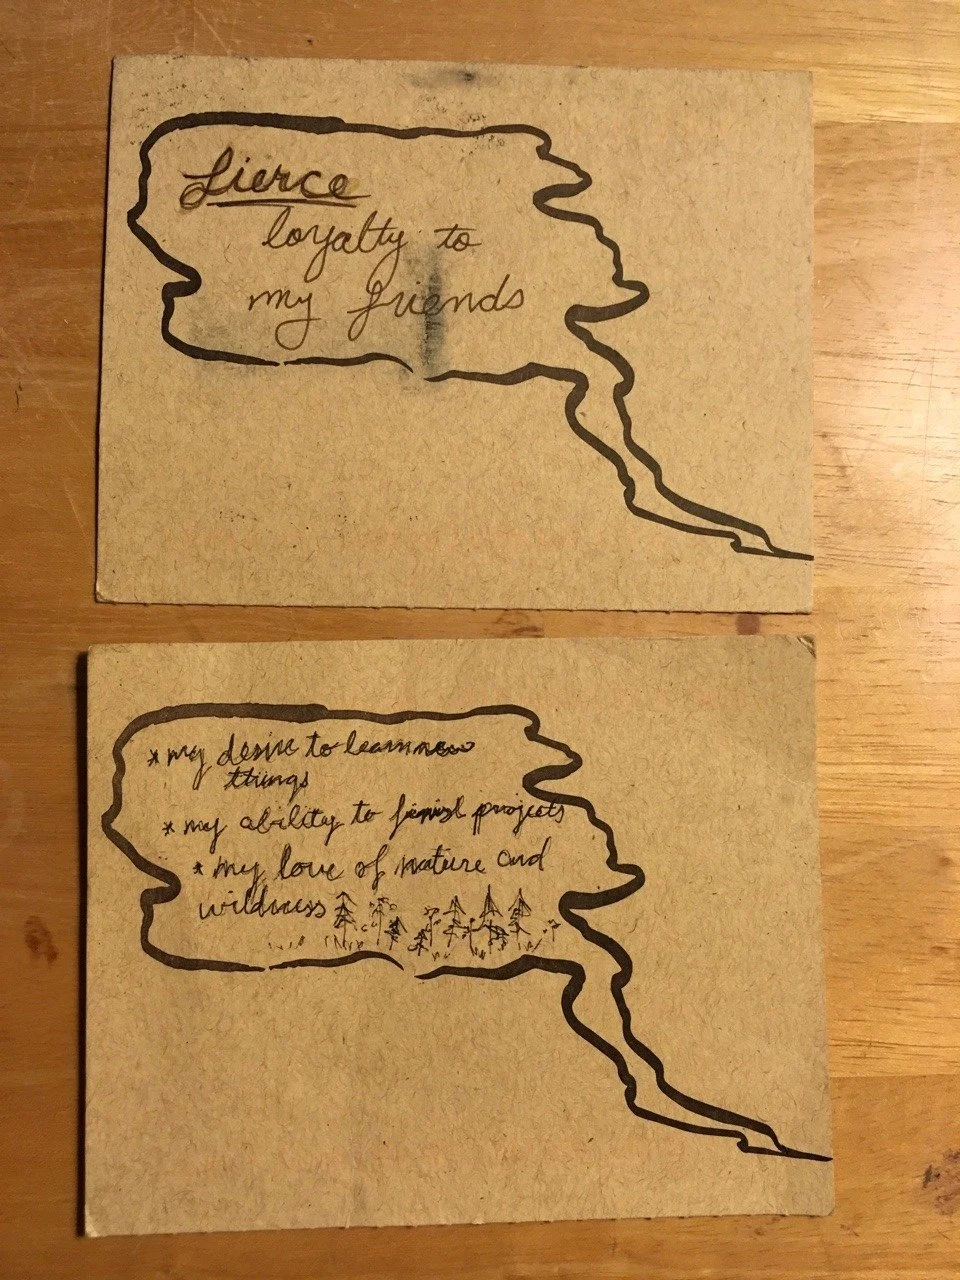 Fierce
loyalty to
my friends
* my desire to learn new
things
* my ability to finish projects
* my love of nature and
wildness